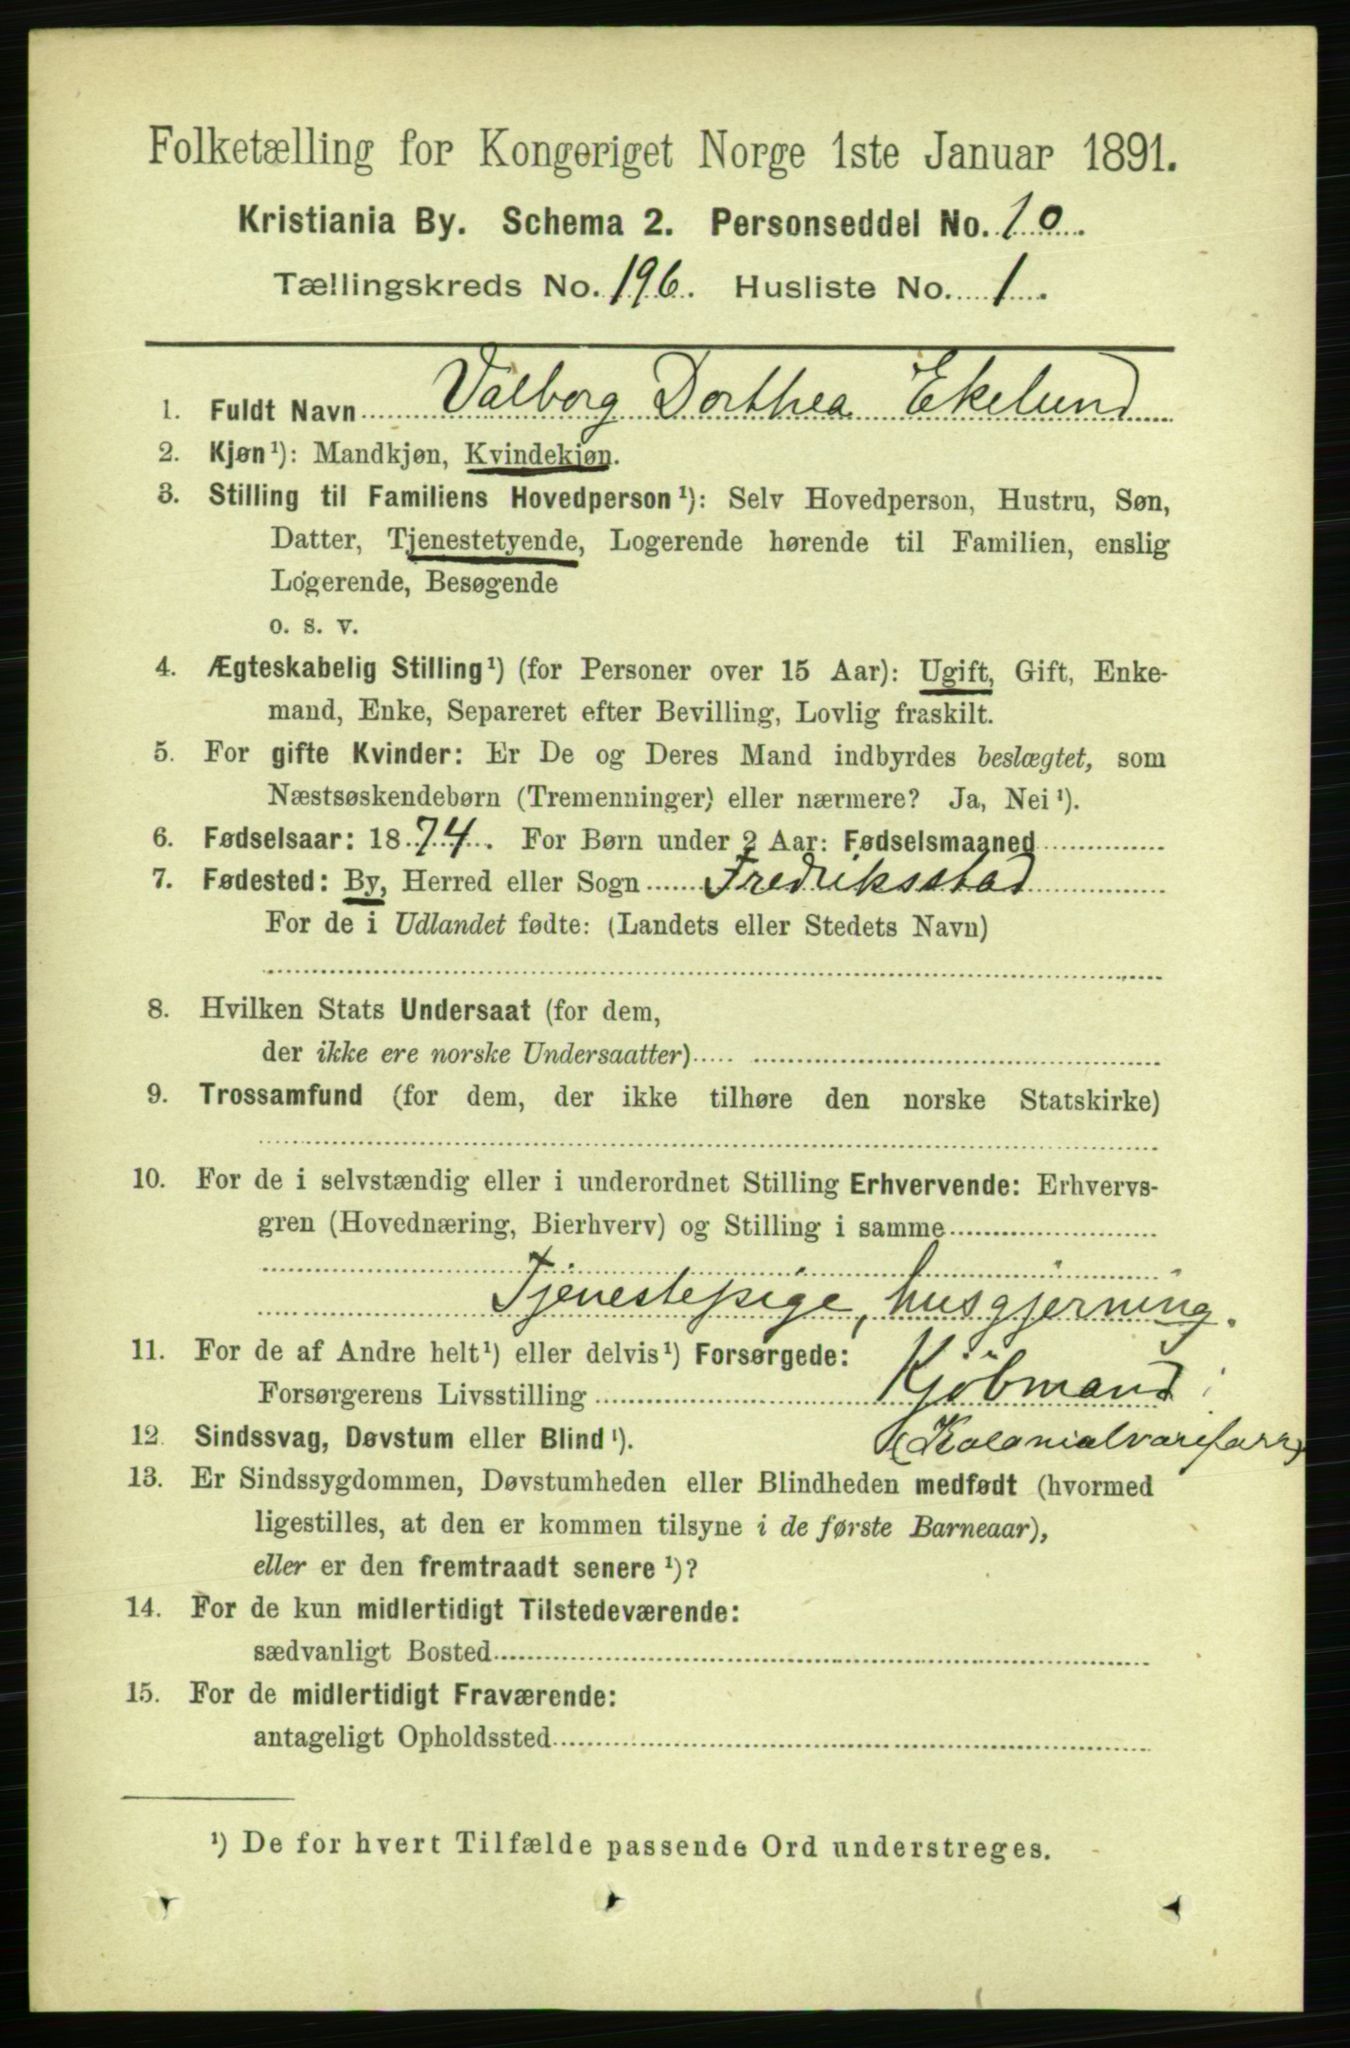 Folketælling for Kongeriget Norge 1ste Januar 1891.
Kristiania By. Schema 2. Personseddel No. 10.
Tællingskreds No. 196. Husliste No. 1.
1. Fuldt Navn Valborg Dorthea Ekelund
2. Kjøn¹): Mandkjøn, Kvindekjøn.
3. Stilling til Familiens Hovedperson¹): Selv Hovedperson, Hustru, Søn,
Datter, Tjenestetyende, Logerende hørende til Familien, enslig
Logerende, Besøgende
o. s. v.
4. Ægteskabelig Stilling¹) (for Personer over 15 Aar): Ugift, Gift, Enke-
mand, Enke, Separeret efter Bevilling, Lovlig fraskilt.
5. For gifte Kvinder: Er De og Deres Mand indbyrdes beslægtet, som
Næstsøskendebørn (Tremenninger) eller nærmere? Ja, Nei¹).
6. Fødselsaar: 1874. For Børn under 2 Aar: Fødselsmaaned
7. Fødested: By, Herred eller Sogn Fredriksstad
For de i Udlandet fødte: (Landets eller Stedets Navn)
8. Hvilken Stats Undersaat (for dem,
der ikke ere norske Undersaatter)
9. Trossamfund (for dem, der ikke tilhøre den norske Statskirke)
10. For de i selvstændig eller i underordnet Stilling Erhvervende: Erhvervs-
gren (Hovednæring, Bierhverv) og Stilling i samme
Tjenestepige, husgjerning.
11. For de af Andre helt¹) eller delvis¹) Forsørgede:
Forsørgerens Livsstilling Kjöbmand
12. Sindssvag, Døvstum eller Blind¹). (Kolonialvareforr)
13. Er Sindssygdommen, Døvstumheden eller Blindheden medfødt (hvormed
ligestilles, at den er kommen tilsyne i de første Barneaar),
eller er den fremtraadt senere¹)?
14. For de kun midlertidigt Tilstedeværende:
sædvanligt Bosted
15. For de midlertidigt Fraværende:
antageligt Opholdssted
¹) De for hvert Tilfælde passende Ord understreges.